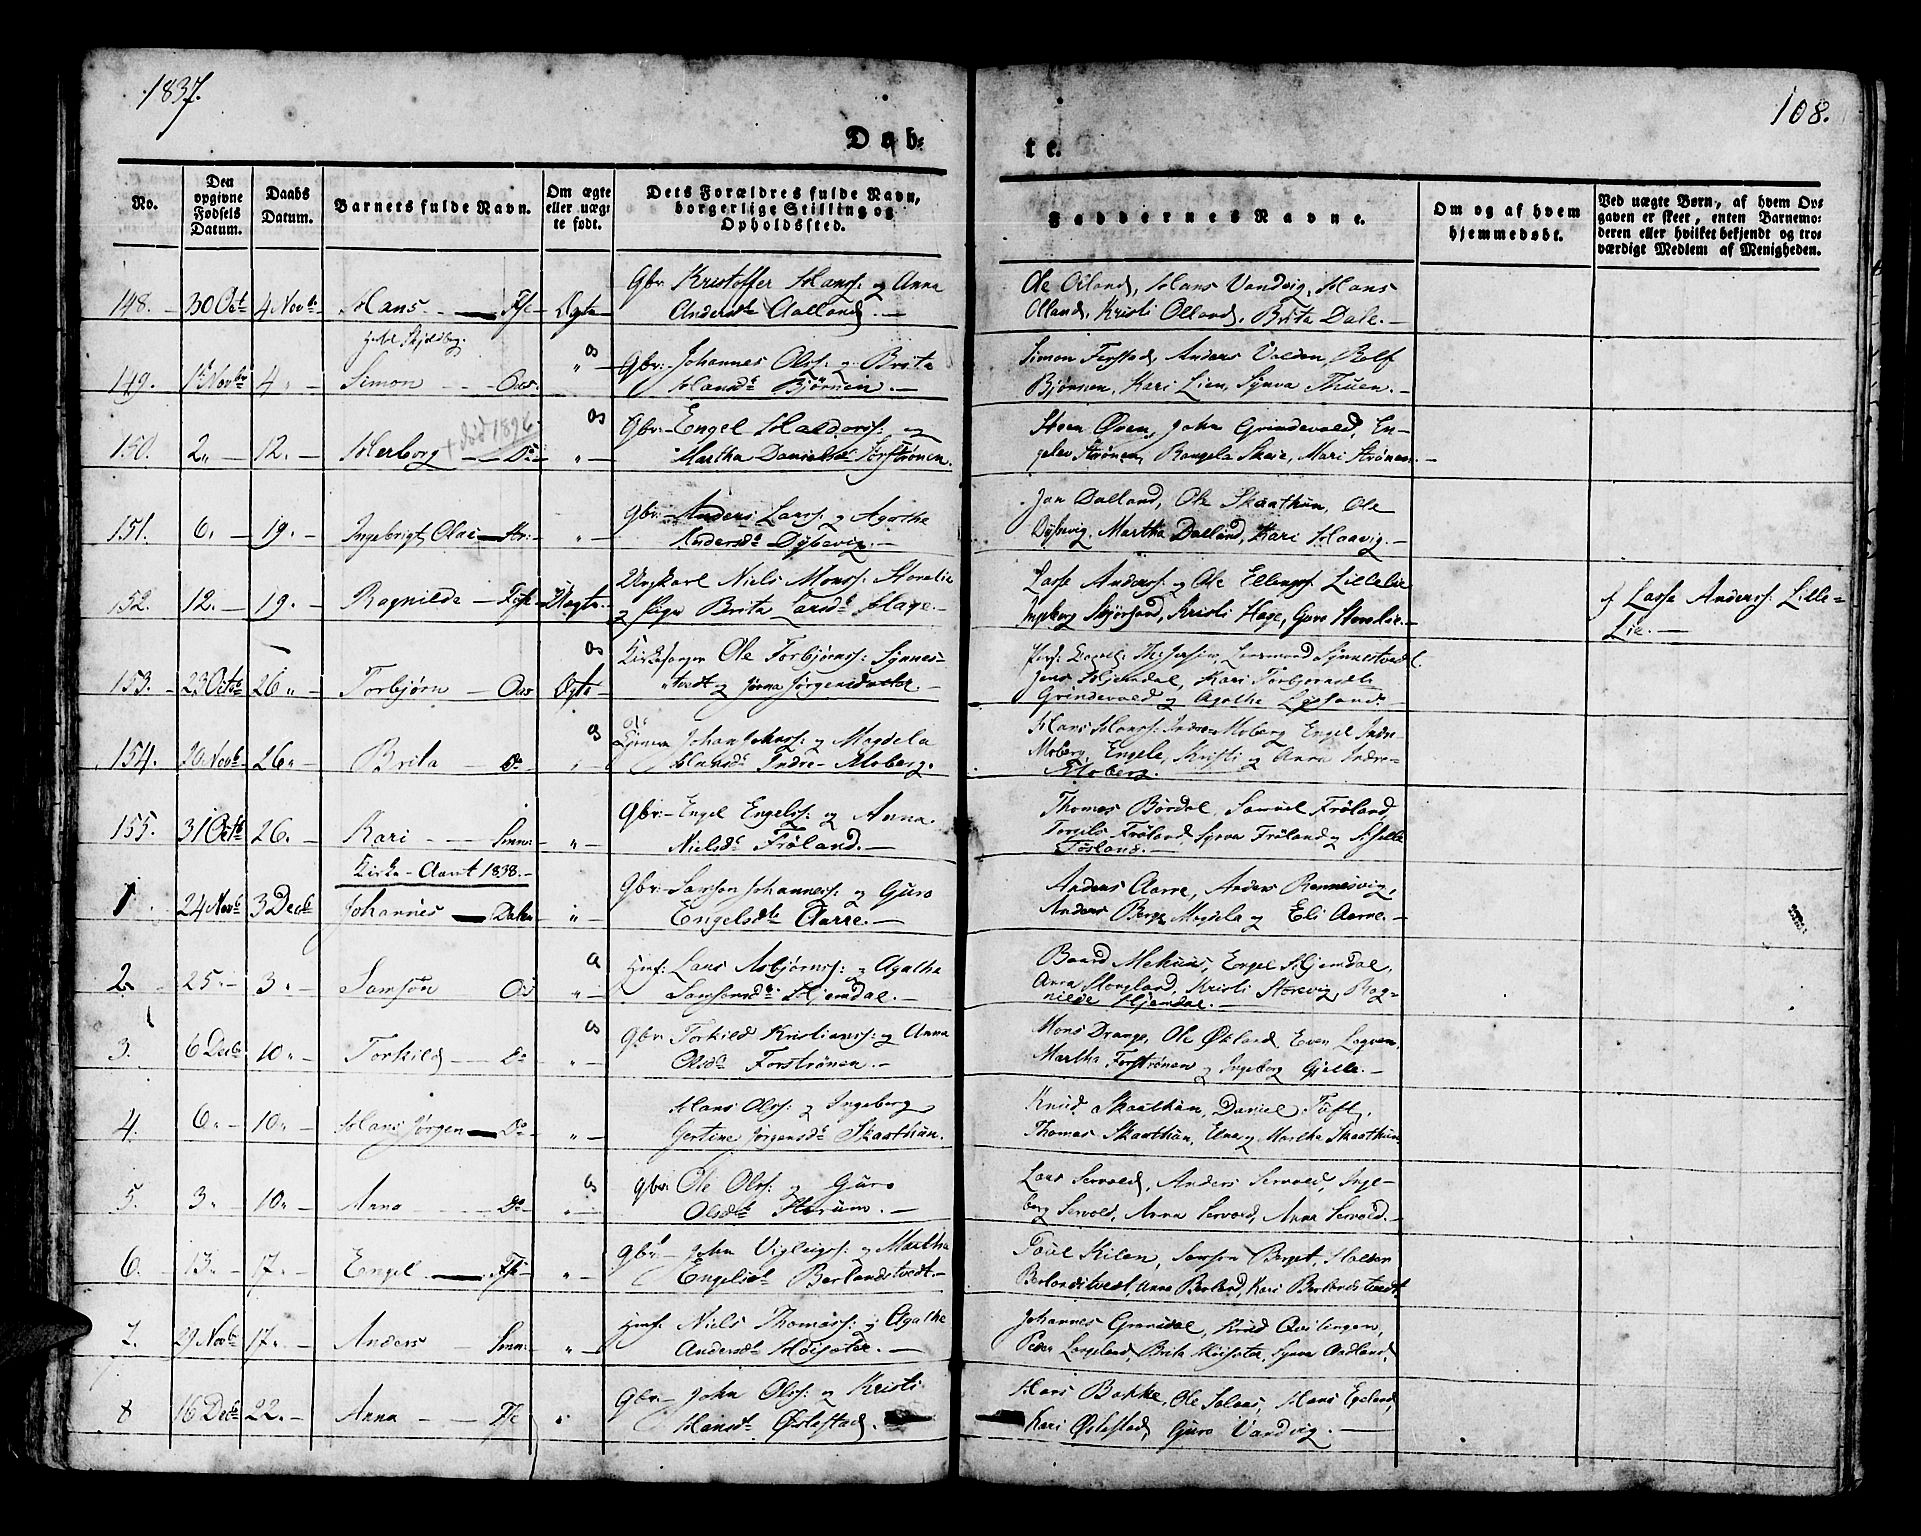 1837.
108.
Døb=
te.
No.
Den opgivne Fødsels Datum.
Daabs Datum.
Barnets fulde Navn.
Om ægte eller uæg= te født.
Dets Forældres fulde Navn, borgerlige Stilling og Opholdssted.
Faddernes Navne.
Om og af hvem hjemmedøbt.
Ved uægte Børn, af hvem Op= gaven er skeet, enten Barnemo= deren eller hvilket bekjendt og tro= værdigt Medlem af Menigheden.
148. 30 Oct 4 Novb. Hans Ægte Gbr. Kristoffer Hanss: og Anna
Andersdt Aalland.
Hans Vandvig, Hans
Olland, Kristi Olland, Brita Dale.
149. 1 Novbr 4 Simon Oos. Gbr. Johannes Olss: og Brita
Hansdt Bjørnen.
Simon Ferstad, Anders Valden, Rolf
Bjørnen, Kari Lien, Synva Thuen.
150. 2. 12. Herborg + død 1896 Do Gbr: Engel Haldorss: og
Martha Danielsdt Forstrønen.
Steen Øvsen, John Grindevold, En-
gelev Strønen, Rangela Skeie, Mari Strønen.
151. 6. 19. Ingebrigt Olai Str: Gbr: Anders Larss: og Agatha
Andersdt Dybevig.
Jon Dalland, Ole Skaathun, Ole
Dybevig, Martha Dalland, Kari Haavig.
152. 12. 19. Ragnilda Uægte Ungkarl Niels Monss: Storelie
og Pige Brita Larsdt Hage.
Lasse Anderss: og Ole Ellingss: Lillelie
Ingborg Skjørsand, Kristi Hage, Guro Storelie.
af Lasse Anderss: Lille=
Lie.
153. 23 Octb 26. Torbjørn Oos Ægte Kirkesanger Ole Torbjørnss: Synnes-
tvedt og Jørna Jørgensdatter.
Jens Hjemdal, Kari Torbjørnsdtr
Grindevold og Agatha Lysland.
154. 20 Novb 26. Brita Do Johan Johnss: og Magdela
Hansdt Indre-Moberg.
Hans Hanss: Indre Moberg Engel Indre
Moberg, Engele, Kristi og Anna Indre-
Moberg.
155. 31 Octb 26. Kari Smn: Gbr: Engel Engelss: og Anna
Nielsdt Frøland.
Thomas Børdal, Samuel Frøland,
Torgils Frøland, Synva Frøland og Sissele
Frøland.
Kirke-Aaret 1838.
1. 24 Novb 3 Decb Johannes Dalen Gbr: Samson Johanness: og Guro
Engelsdt Aarre.
Anders Aarre, Anders Rennesvig,
Anders Berge Magdela og Eli Aarre.
2. 25. 3. Samson Os Huf: Lars Asbjørnss: og Agatha
Samsonsdt Hjemdal.
Baard Mehuus, Engel Hjemdal,
Anna Haugland, Kristi Storevig, Rag-
nilde Hjemdal.
3. 6 Decb 10. Torkild Do Gbr: Torkild Kristianss: og Anna
Olsdt Forstrønen.
Mons Drange, Ole Økland, Even Lepsøen,
Martha Forstrønen og Ingeborg Gjelle.
4. 6. 10. Hans Jørgen Do Hans Olss: og Ingeborg
Gertine Jørgensdt Skaathun.
Knud Skaathun, Daniel Tøft,
Thomas Skaathun, Elna og Martha Skaathun
5. 3. 10. Anna Do Gbr: Ole Olss: og Guro
Olsdt Hørum.
Lars Servold, Anders Servold, Inge-
borg Servold, Anna Servold, Anna Servold.
6. 13. 17. Engel Gbr: John Vigleigss: og Martha
Engelsdt Berlandstvedt.
Poul Kilen, Samson Berget, Haldor
Berlandstvedt, Anna Berland, Kari Berlandstvedt.
7. 29 Novb 17. Anders Smn: Huf: Niels Thomass: og Agatha
Andersdt Høisæter.
Johannes Granedal, Knud Qvilingen,
Peder Langeland, Brita Høisæter, Synva Aadland.
8 16 Decb 22. Anna Gbr. John Olss: og Kristi
Hansdt Østestad.
Hans Bakke, Ole Solaas, Hans Egeland,
Kari Østestad, Guro Vandvig.